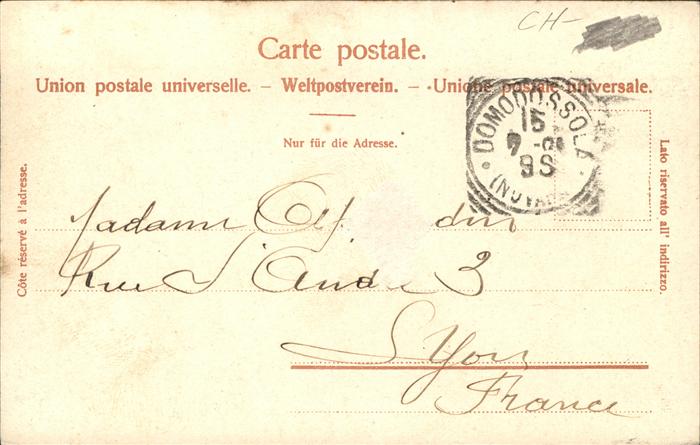 CH-
Carte postale.
Union postale universelle. – Weltpostverein. – Unione postale universale.
Nur für die Adresse.
Côte réservé à l'adresse.
Lato riservato all' indirizzo.
DOMODOSSOLA
15
9S
Madame
Rue S' André 3
Lyon
France